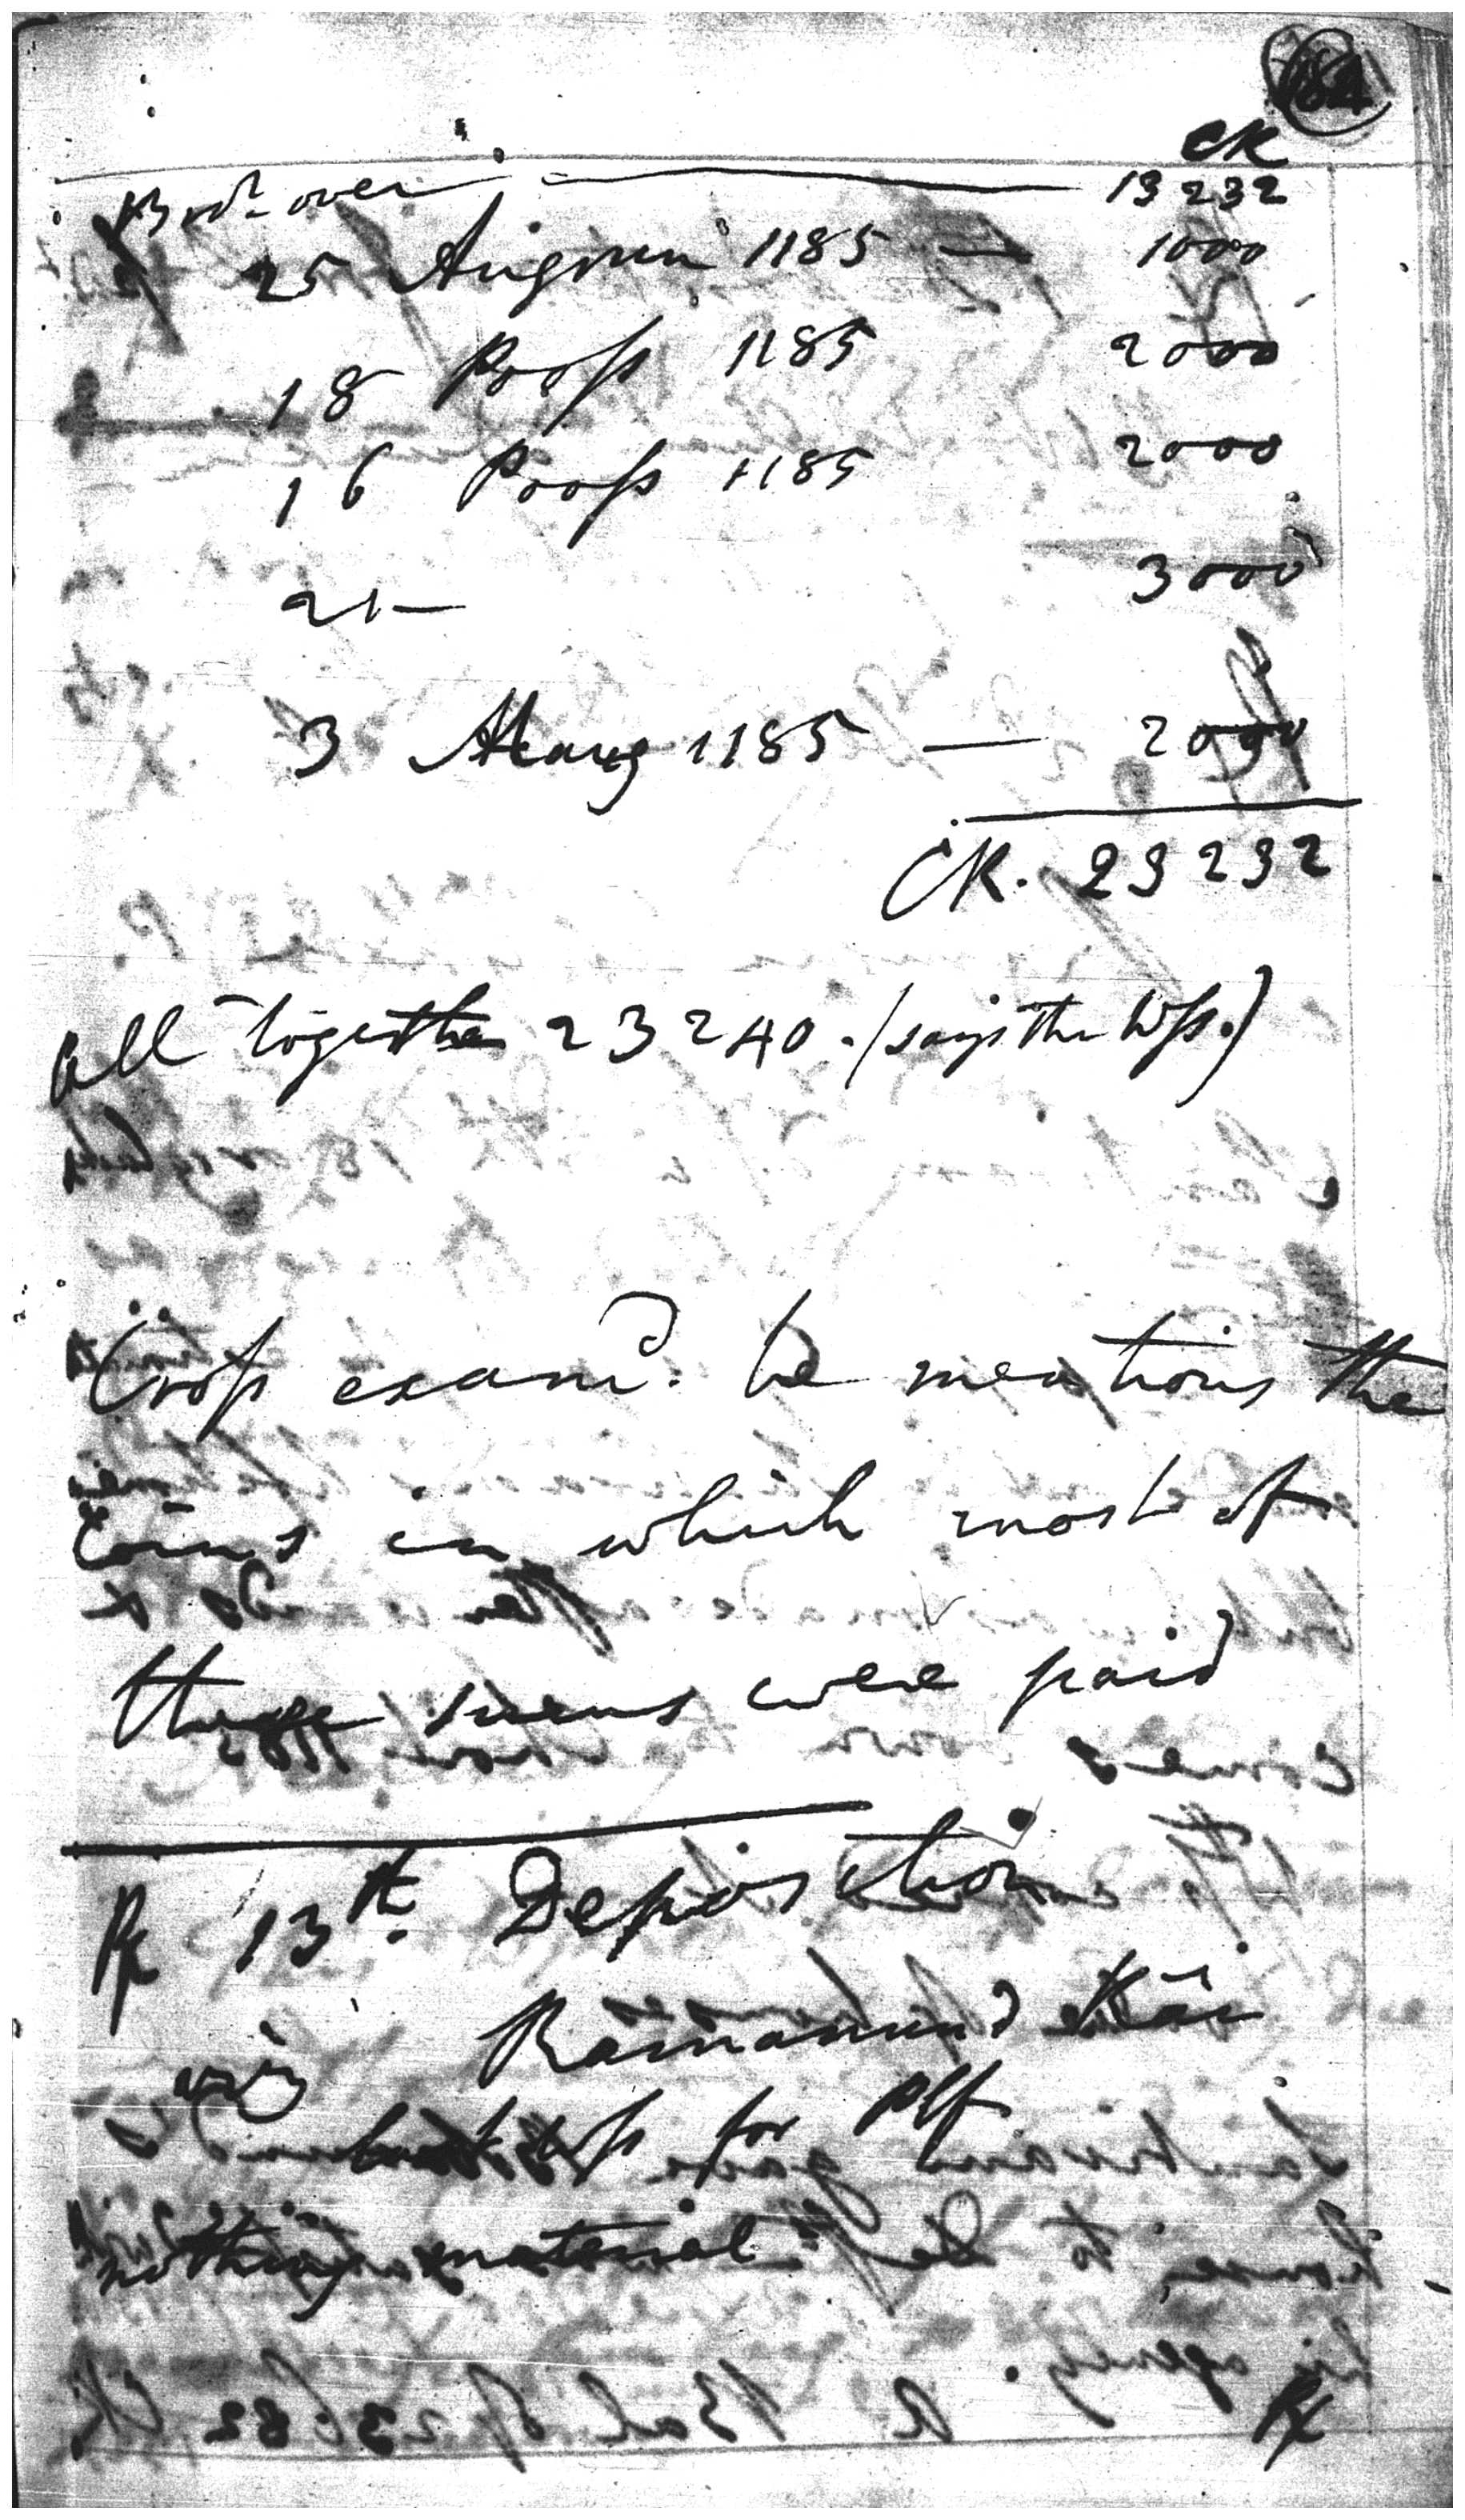 184
CR
Brot. over — 13232
25 Augrun 1185 — 1000
18 Pooss 1185 2000
16 Pooss 1185 2000
21 — 3000
3 Maug 1185 — 2000
CR. 23232
all together 23240. (says the Wss.)
Cross examd. he mentions the
Coins in which most of
these sums were paid
13th. Deposition
Ramanund
Wss for Plf
nothing material